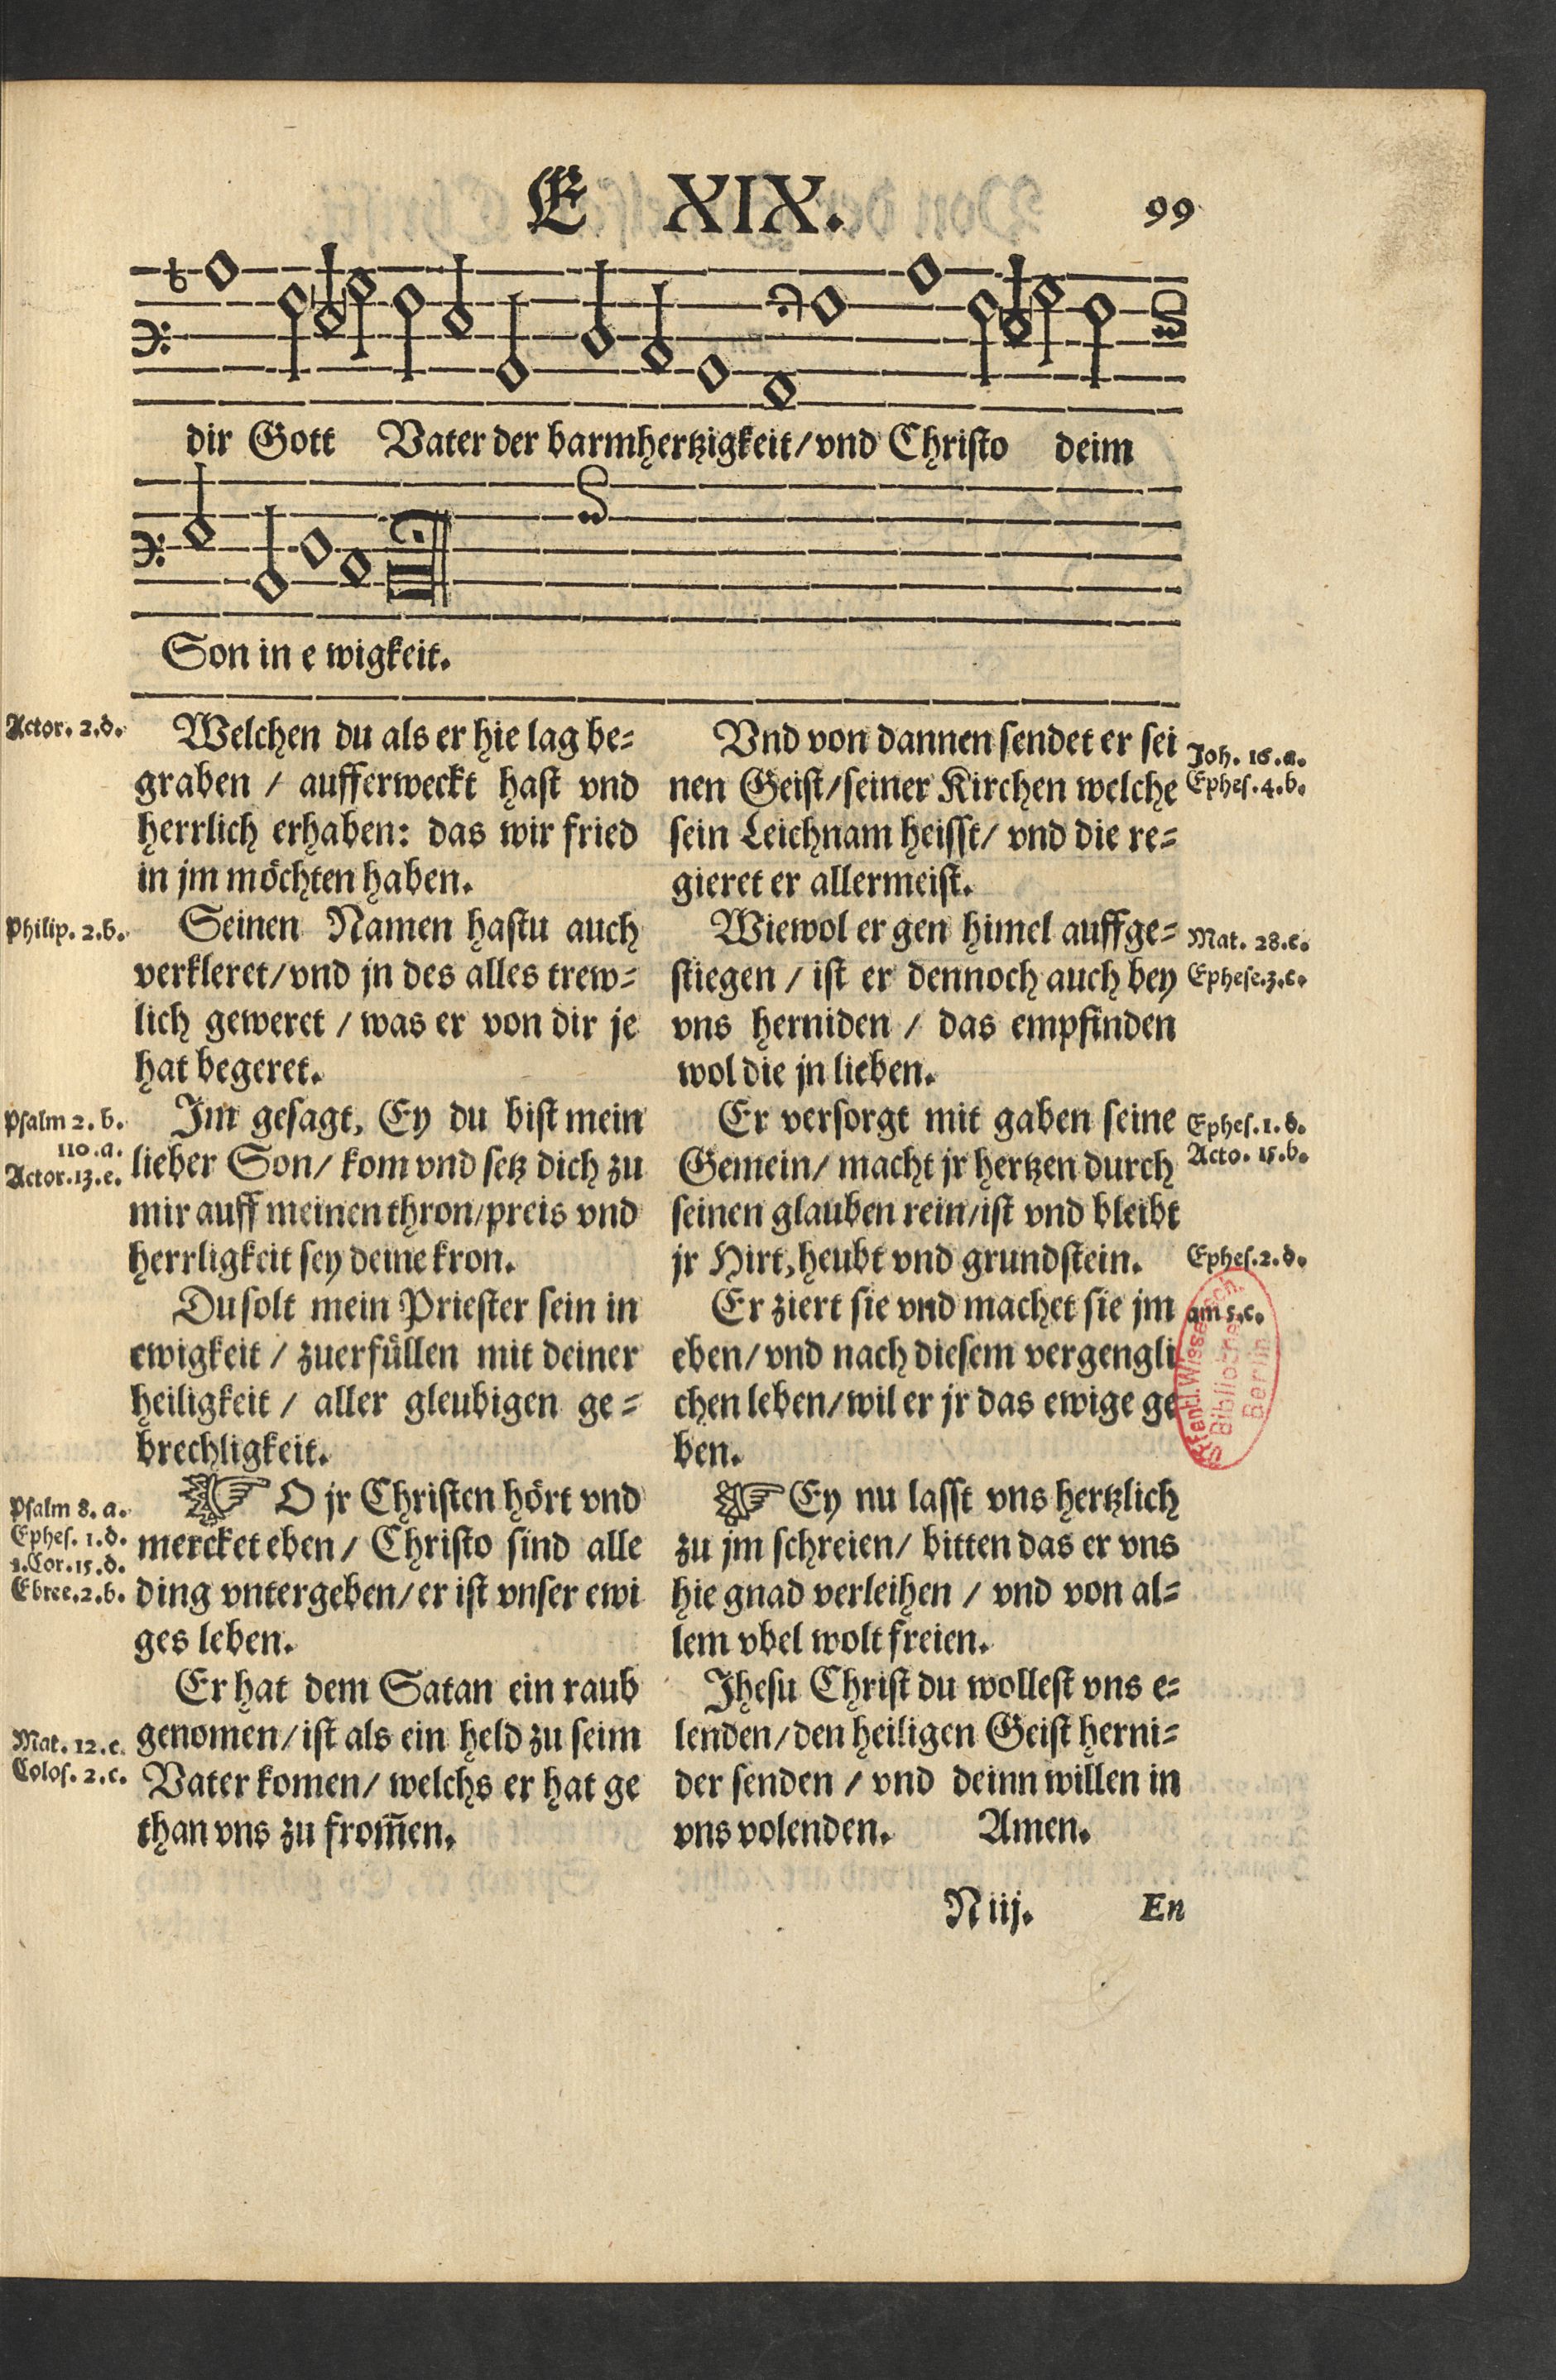 E XIX.
99
dir Gott Vater der barmhertzigkeit/ vnd Christo deim
Son in e wigkeit.
Actor. 2.d.
Welchen du als er hie lag be=
graben / aufferweckt hast vnd
herrlich erhaben: das wir fried
in jm möchten haben.
Philip. 2.b.
Seinen Namen hastu auch
verkleret/ vnd jn des alles trew=
lich geweret / was er von dir je
hat begeret.
Psalm 2. b.
110.a.
Actor.13.e.
Im gesagt, Ey du bist mein
lieber Son/ kom vnd setz dich zu
mir auff meinen thron/ preis vnd
herrligkeit sey deine kron.
Du solt mein Priester sein in
ewigkeit / zuerfüllen mit deiner
heiligkeit / aller gleubigen ge=
brechligkeit.
Psalm 8. a.
Ephes. 1.d.
1.Cor.15.d.
Ebree.2.b.
O jr Christen hört vnd
mercket eben/ Christo sind alle
ding vntergeben/ er ist vnser ewi
ges leben.
Er hat dem Satan ein raub
genomen/ ist als ein held zu seim
Vater komen/ welchs er hat ge
than vns zu from̄en.
Mat. 12.c.
Colos. 2.c.
Vnd von dannen sendet er sei
nen Geist/ seiner Kirchen welche
sein Leichnam heisst/ vnd die re=
gieret er allermeist.
Joh. 16.a.
Ephes.4.b.
Wiewol er gen himel auffge=
stiegen / ist er dennoch auch bey
vns herniden / das empfinden
wol die jn lieben.
Mat. 28.c.
Ephese.3.c.
Er versorgt mit gaben seine
Gemein/ macht jr hertzen durch
seinen glauben rein/ ist vnd bleibt
jr Hirt, heubt vnd grundstein.
Ephes.1.d.
Acto. 15.b.
Ephes.2.d.
Er ziert sie vnd machet sie jm
eben/ vnd nach diesem vergengli
chen leben/ wil er jr das ewige ge
ben.
am 5.c.
Ey nu lasst vns hertzlich
zu jm schreien/ bitten das er vns
hie gnad verleihen / vnd von al=
lem vbel wolt freien.
Jhesu Christ du wollest vns e=
lenden/ den heiligen Geist herni=
der senden / vnd deinn willen in
vns volenden. Amen.
N iij.
En
Bibliothek
Berlin